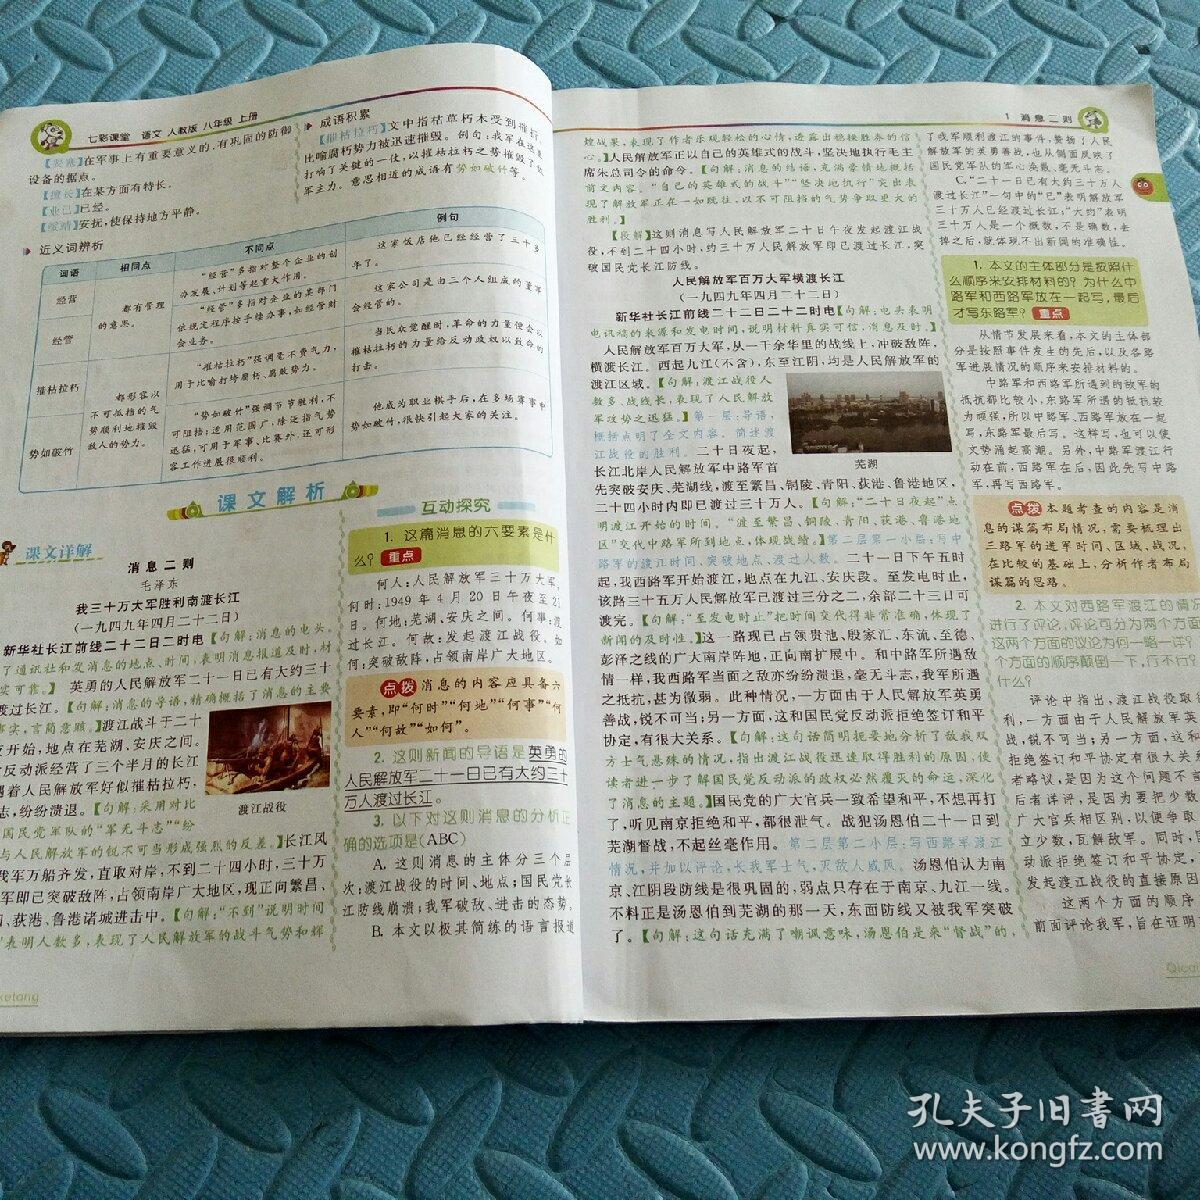 七彩课堂 语文 人教版 八年级 上册
【要塞】在军事上有重要意义的、有巩固的防御
设备的据点。
【擅长】在某方面有特长。
【业已】已经。
【绥靖】安抚,使保持地方平静。
近义词辨析
成语积累
【摧枯拉朽】文中指枯草朽木受到摧折,
比喻腐朽势力被迅速摧毁。例句:我军在这里
打响了关键的一仗,以摧枯拉朽之势摧毁了敌
军主力。意思相近的成语有势如破竹等。
词语 相同点 不同点 例句
经营
经管
都有管理
的意思。
“经营”多指对整个企业的创
办发展、计划等起重大作用。
“经管”多指对企业的某部门
依规定程序按手续办事,如经管财
会业务。
这家饭店他已经经营了三十多
年了。
这家公司是由三个人组成的董事
会经管的。
摧枯拉朽
势如破竹
都形容以
不可抵挡的气
势顺利地摧毁
敌人的势力。
“摧枯拉朽”强调毫不费气力,
用于比喻打垮腐朽、腐败势力。
“势如破竹”强调节节胜利,不
可阻挡;适用范围广,除泛指气势
迅猛,可用于军事、比赛外,还可形
容工作进展很顺利。
当民众觉醒时,革命的力量便会以
摧枯拉朽的力量给反动政权以致命的
打击。
他成为职业棋手后,在多场赛事中
势如破竹,很快引起大家的关注。
课文解析
课文详解
消息二则
毛泽东
我三十万大军胜利南渡长江
(一九四九年四月二十二日)
新华社长江前线二十二日二时电【句解:消息的电头。
了通讯社和发消息的地点、时间,表明消息报道及时,材
实可靠。】 英勇的人民解放军二十一日已有大约三十
渡过长江。【句解:消息的导语,精确概括了消息的主要
事实,言简意赅。】渡江战斗于二十
夜开始,地点在芜湖、安庆之间。
反动派经营了三个半月的长江
遇着人民解放军好似摧枯拉朽,
志,纷纷溃退。【句解:采用对比
国民党军队的“军无斗志”“纷
与人民解放军的锐不可当形成强烈的反差。】长江风
我军万船齐发,直取对岸,不到二十四小时,三十万
军即已突破敌阵,占领南岸广大地区,现正向繁昌、
、荻港、鲁港诸城进击中。【句解:“不到”说明时间
”表明人数多,表现了人民解放军的战斗气势和辉
渡江战役
ketang
互动探究
1. 这篇消息的六要素是什
么? 重点
何人:人民解放军三十万大军。
何时:1949 年 4 月 20 日午夜至21
日。何地:芜湖、安庆之间。何事:渡
过长江。何故:发起渡江战役。如
何:突破敌阵,占领南岸广大地区。
点拨 消息的内容应具备六
要素,即“何时”“何地”“何事”“何
人”“何故”“如何”。
2. 这则新闻的导语是英勇的
人民解放军二十一日已有大约三十
万人渡过长江。
3. 以下对这则消息的分析正
确的选项是(ABC)
A. 这则消息的主体分三个层
次:渡江战役的时间、地点;国民党长
江防线崩溃;我军破敌、进击的态势。
B. 本文以极其简练的语言报道
1 消息二则
煌战果,表现了作者乐观轻松的心情,透露出稳操胜券的信
心。】人民解放军正以自己的英雄式的战斗,坚决地执行毛主
席朱总司令的命令。【句解:消息的结语,充满豪情地概括
前文内容。“自己的英雄式的战斗”“坚决地执行”突出表
现了解放军正在一如既往,以不可阻挡的气势争取更大的
胜利。】
【段解】这则消息写人民解放军二十日午夜发起渡江战
役,不到二十四小时,约三十万人民解放军即已渡过长江,突
破国民党长江防线。
人民解放军百万大军横渡长江
(一九四九年四月二十二日)
新华社长江前线二十二日二十二时电【句解:电头表明
电讯稿的来源和发电时间,说明材料真实可信、消息及时。】
人民解放军百万大军,从一千余华里的战线上,冲破敌阵,
横渡长江。西起九江(不含),东至江阴,均是人民解放军的
渡江区域。【句解:渡江战役人
数多、战线长,表现了人民解放
军攻势之迅猛。】第一层:导语,
概括点明了全文内容。简述渡
江战役的胜利。二十日夜起,
长江北岸人民解放军中路军首
先突破安庆、芜湖线,渡至繁昌、铜陵、青阳、荻港、鲁港地区,
二十四小时内即已渡过三十万人。【句解:“二十日夜起”点
明渡江开始的时间。“渡至繁昌、铜陵、青阳、荻港、鲁港地
区”交代中路军所到地点,体现战绩。】第二层第一小层:写中
路军的渡江时间、突破地点、渡过人数。二十一日下午五时
起,我西路军开始渡江,地点在九江、安庆段。至发电时止,
该路三十五万人民解放军已渡过三分之二,余部二十三日可
渡完。【句解:“至发电时止”把时间交代得非常准确,体现了
新闻的及时性。】这一路现已占领贵池、殷家汇、东流、至德、
彭泽之线的广大南岸阵地,正向南扩展中。和中路军所遇敌
情一样,我西路军当面之敌亦纷纷溃退,毫无斗志,我军所遇
之抵抗,甚为微弱。此种情况,一方面由于人民解放军英勇
善战,锐不可当;另一方面,这和国民党反动派拒绝签订和平
协定,有很大关系。【句解:这句话简明扼要地分析了敌我双
方士气悬殊的情况,指出渡江战役迅速取得胜利的原因,使
读者进一步了解国民党反动派的政权必然覆灭的命运,深化
了消息的主题。】国民党的广大官兵一致希望和平,不想再打
了,听见南京拒绝和平,都很泄气。战犯汤恩伯二十一日到
芜湖督战,不起丝毫作用。第二层第二小层:写西路军渡江
情况,并加以评论,长我军士气,灭敌人威风。 汤恩伯认为南
京、江阴段防线是很巩固的,弱点只存在于南京、九江一线。
不料正是汤恩伯到芜湖的那一天,东面防线又被我军突破
了。【句解:这句话充满了嘲讽意味,汤恩伯是来“督战”的,
芜湖
了我军顺利渡江的事件,赞扬了人民
解放军的英勇善战,也从侧面反映了
国民党军队的军心涣散、毫无斗志。
C.“二十一日已有大约三十万人
渡过长江”一句中的“已”表明解放军
三十万人已经渡过长江;“大约”表明
三十万人是一个概数,不是确数,去
掉之后,就体现不出新闻的准确性。
1. 本文的主体部分是按照什
么顺序来安排材料的?为什么中
路军和西路军放在一起写,最后
才写东路军? 重点
从情节发展来看,本文的主体部
分是按照事件发生的先后,以及各路
军进展情况的顺序来安排材料的。
中路军和西路军所遇到的敌军的
抵抗都比较小,东路军所遇的抵抗较
为顽强,所以中路军、西路军放在一起
写,东路军最后写。这样写,也可以使
文势涌起高潮。另外,中路军渡江行
动在前,西路军在后,因此先写中路
军,再写西路军。
点拨 本题考查的内容是消
息的谋篇布局情况,需要梳理出
三路军的进军时间、区域、战况,
在比较的基础上,分析作者布局
谋篇的思路。
2. 本文对西路军渡江的情况
进行了评论,评论可分为两个方面,
这两个方面的议论为何一略一详?
个方面的顺序颠倒一下,行不行?
什么?
评论中指出,渡江战役取
利,一方面由于人民解放军英
战,锐不可当;另一方面,这和
拒绝签订和平协定有很大关
者略议,是因为这个问题不言
后者详评,是因为要把少数
广大官兵相区别,以便争取
立少数,瓦解敌军。同时,
动派拒绝签订和平协定,
发起渡江战役的直接原因
这两个方面的顺序
前面评论我军,旨在证明
Qicai
孔夫子旧书网
www.kongfz.com